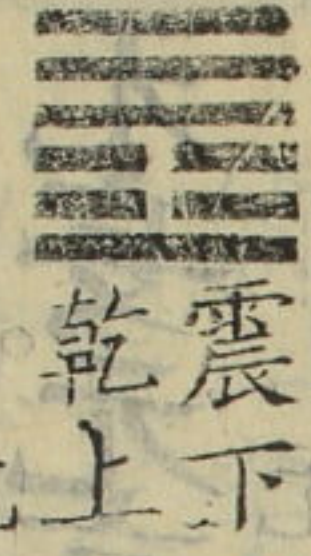 震下
乾上